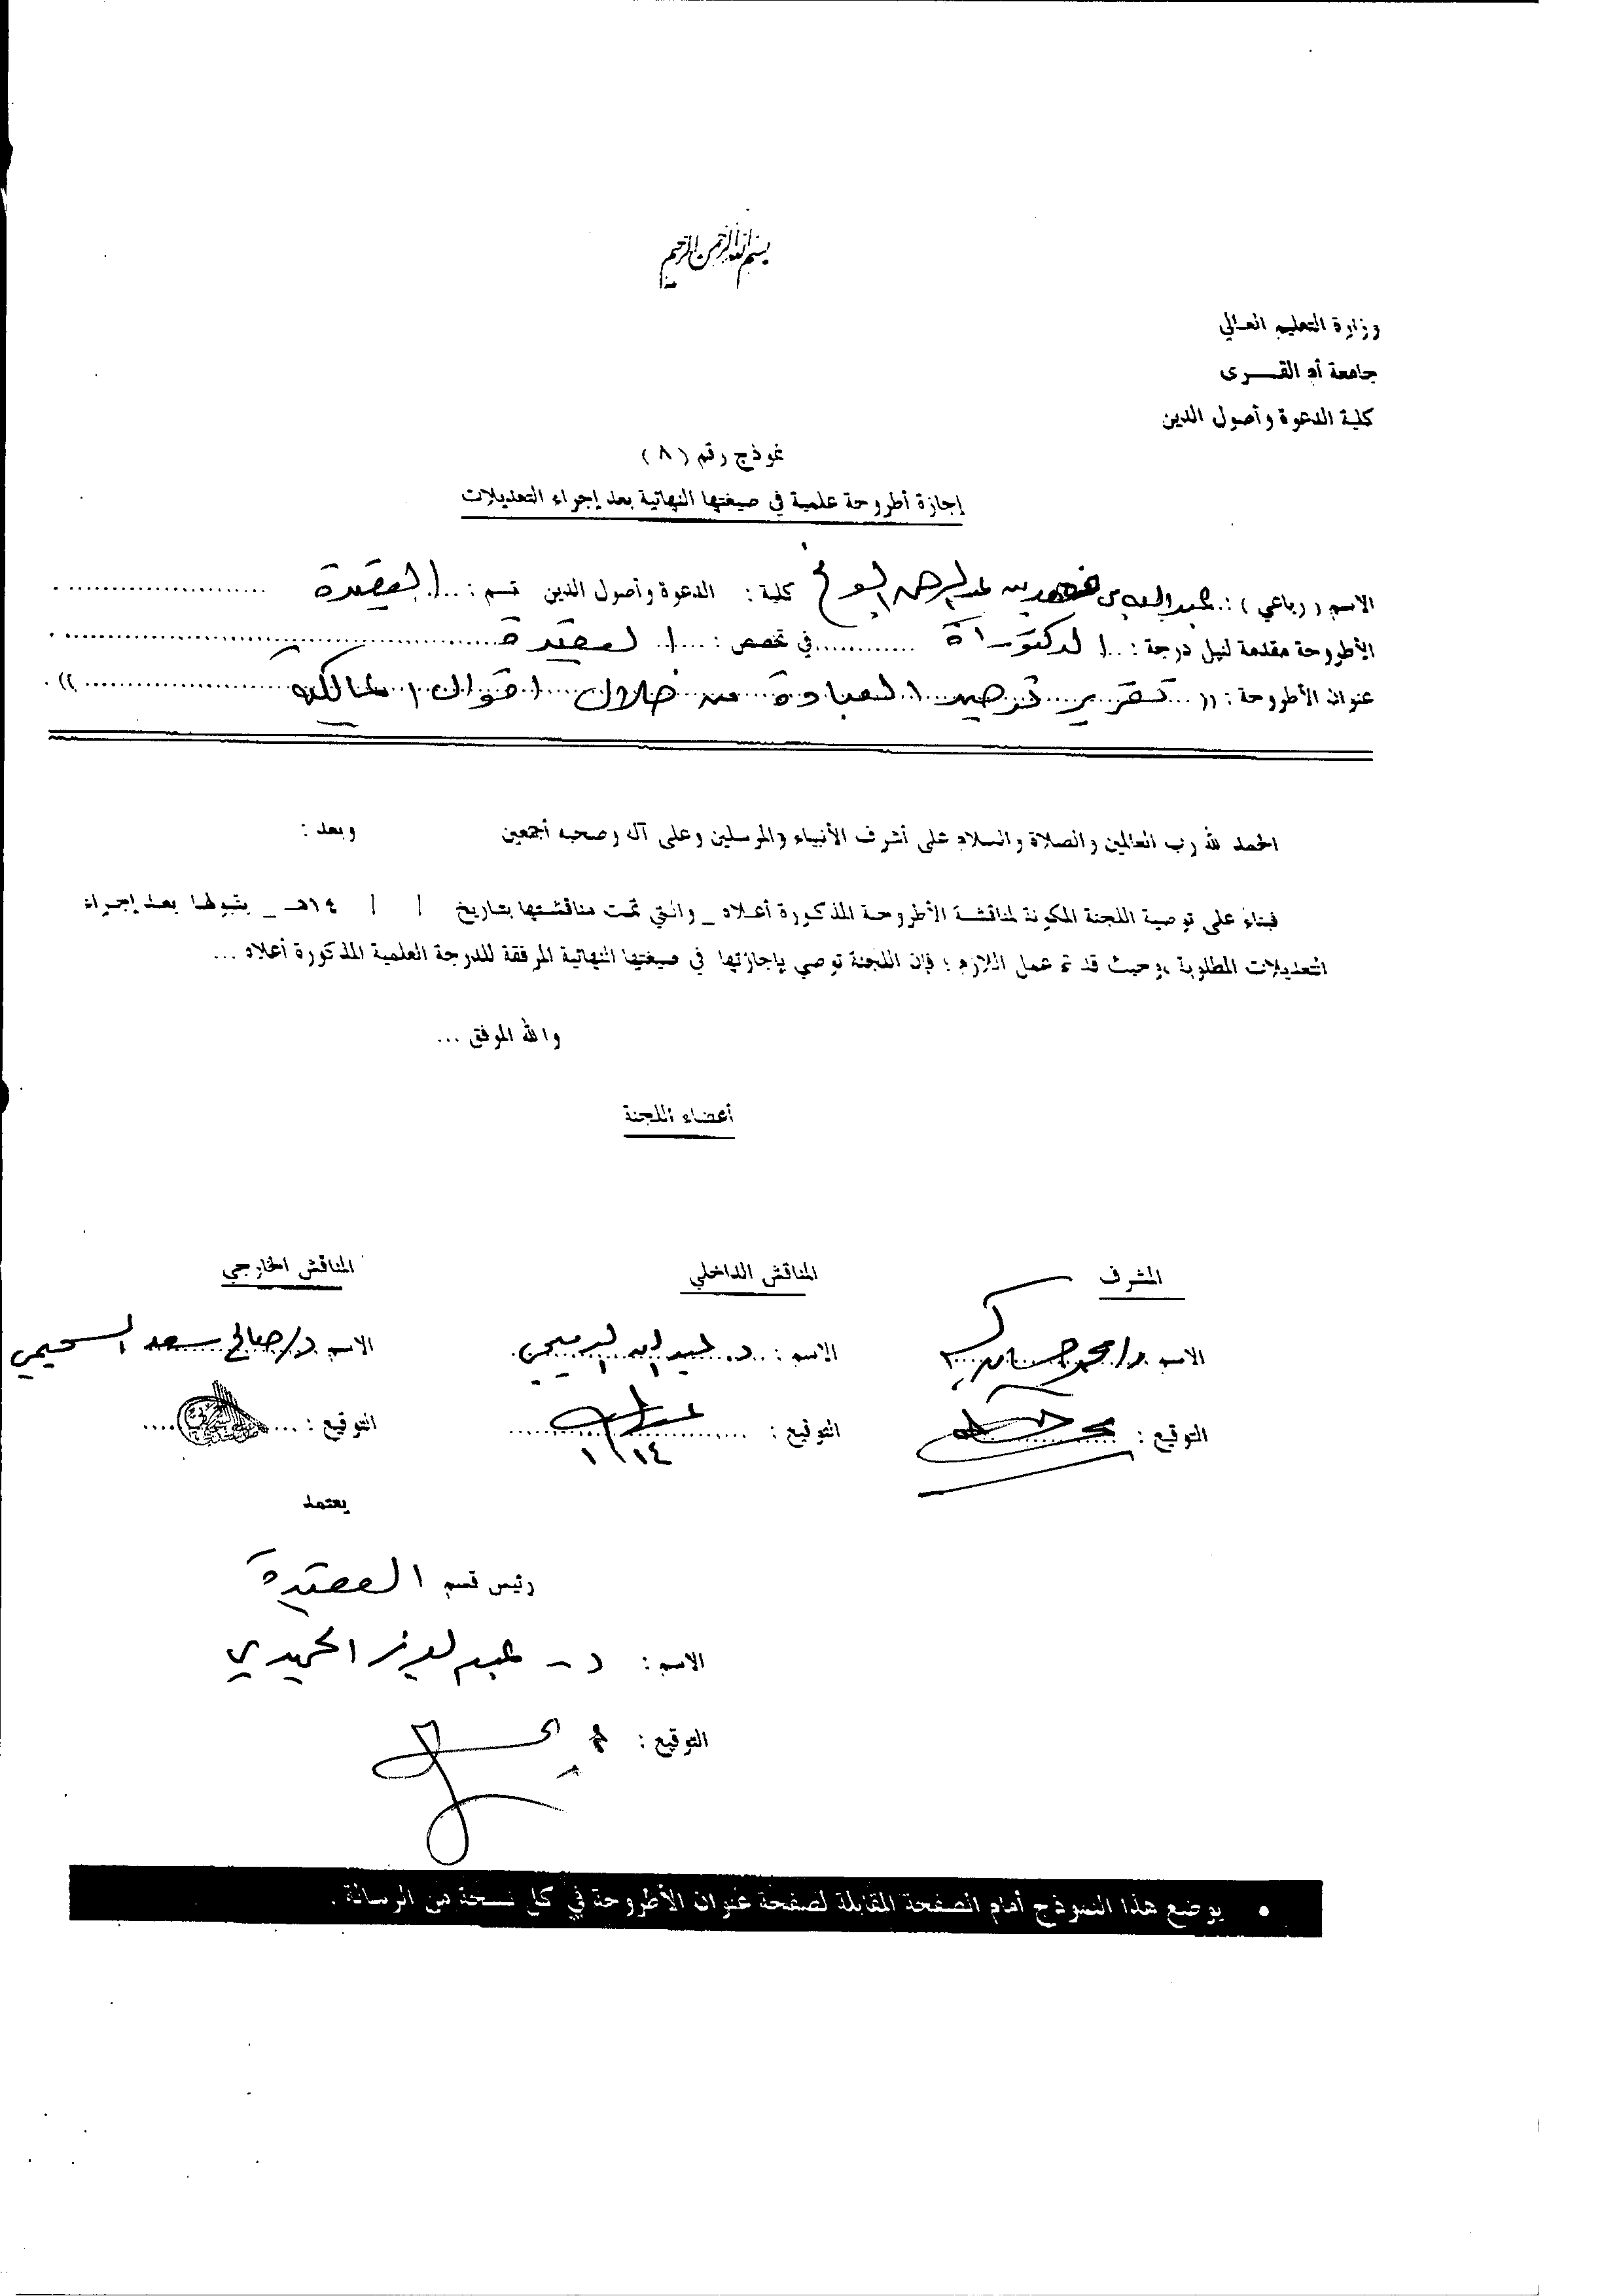 بسم الله الرحمن الرحيم
وزارة التعليم العالي
جامعة أم القــــرى
كلية الدعوة وأصول الدين
نموذج رقم (٨)
إجازة أطروحة علمية في صيغتها النهائية بعد إجراء التعديلات
الاسم (رباعي) : عبد الله بن بن عبد الرحمن كلية : الدعوة وأصول الدين قسم : العقيدة
الأطروحة مقدمة لنيل درجة : الدكتوراة في تخصص : العقيدة
عنوان الأطروحة : (( تقرير توحيد العبادة من خلال أقوال المالكية ))
الحمد لله رب العالمين والصلاة والسلام على أشرف الأنبياء والمرسلين وعلى آله وصحبه أجمعين وبعد :
فبناءً على توصية اللجنة المكونة لمناقشة الأطروحة المذكورة أعلاه _ والتي تمت مناقشتها بتاريخ / / ١٤هـ _ بقبولها بعد إجراء
التعديلات المطلوبة ، وحيث قد تم عمل اللازم ؛ فإن اللجنة توصي بإجازتها في صيغتها النهائية المرفقة للدرجة العلمية المذكورة أعلاه ...
والله الموفق ...
أعضاء اللجنة
المشرف المناقش الداخلي المناقش الخارجي
الاسم د/ محمد حسان الاسم : د. عبد الله الدميجي الاسم د/ صالح سعد السحيمي
التوقيع : التوقيع : التوقيع :
١/١٤
يعتمد
رئيس قسم العقيدة
الاسم : د - عبد العزيز الحميدي
التوقيع :
• يوضع هذا النموذج أمام الصفحة المقابلة لصفحة عنوان الأطروحة في كل نسخة من الرسالة .